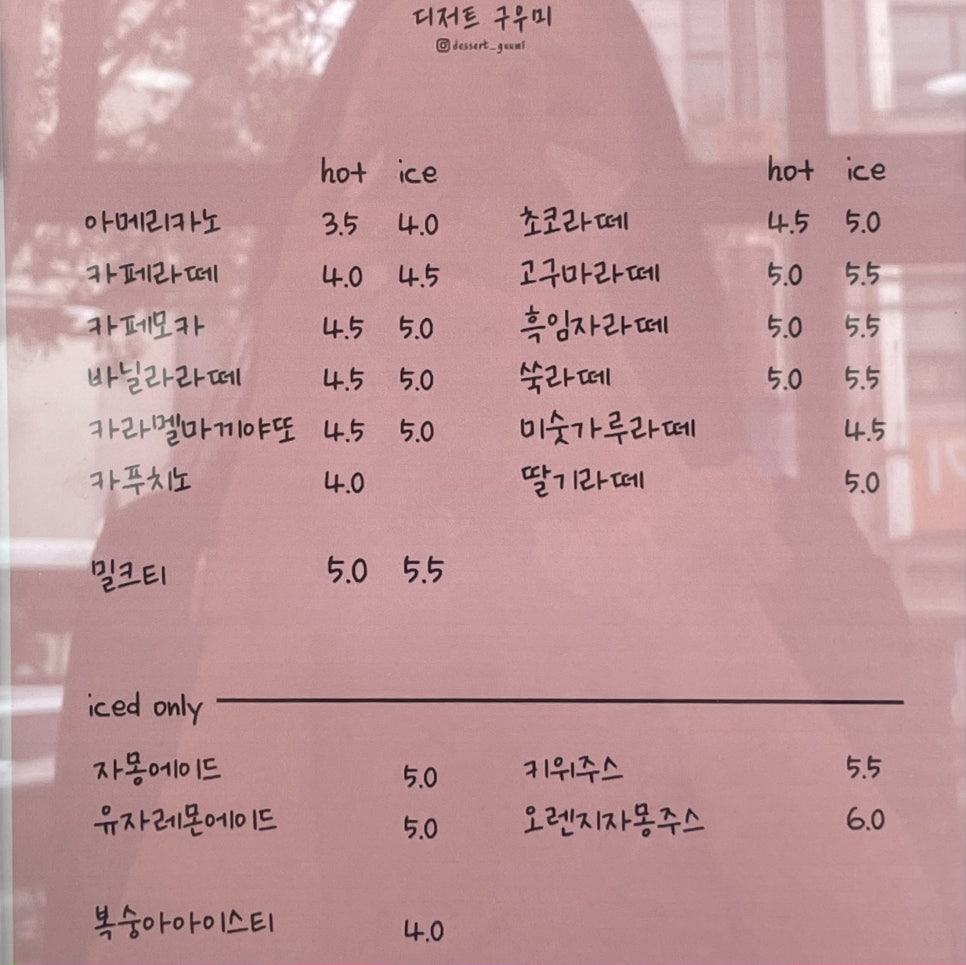 디저트 구우미
dessert_guumi
hot ice hot ice
아메리카노 3.5 4.0 초코라떼 4.5 5.0
카페라떼 4.0 4.5 고구마라떼 5.0 5.5
카페모카 4.5 5.0 흑임자라떼 5.0 5.5
바닐라라떼 4.5 5.0 쑥라떼 5.0 5.5
카라멜마끼야또 4.5 5.0 미숫가루라떼 4.5
카푸치노 4.0 딸기라떼 5.0
밀크티 5.0 5.5
iced only
자몽에이드 5.0 키위주스 5.5
유자레몬에이드 5.0 오렌지자몽주스 6.0
복숭아아이스티 4.0